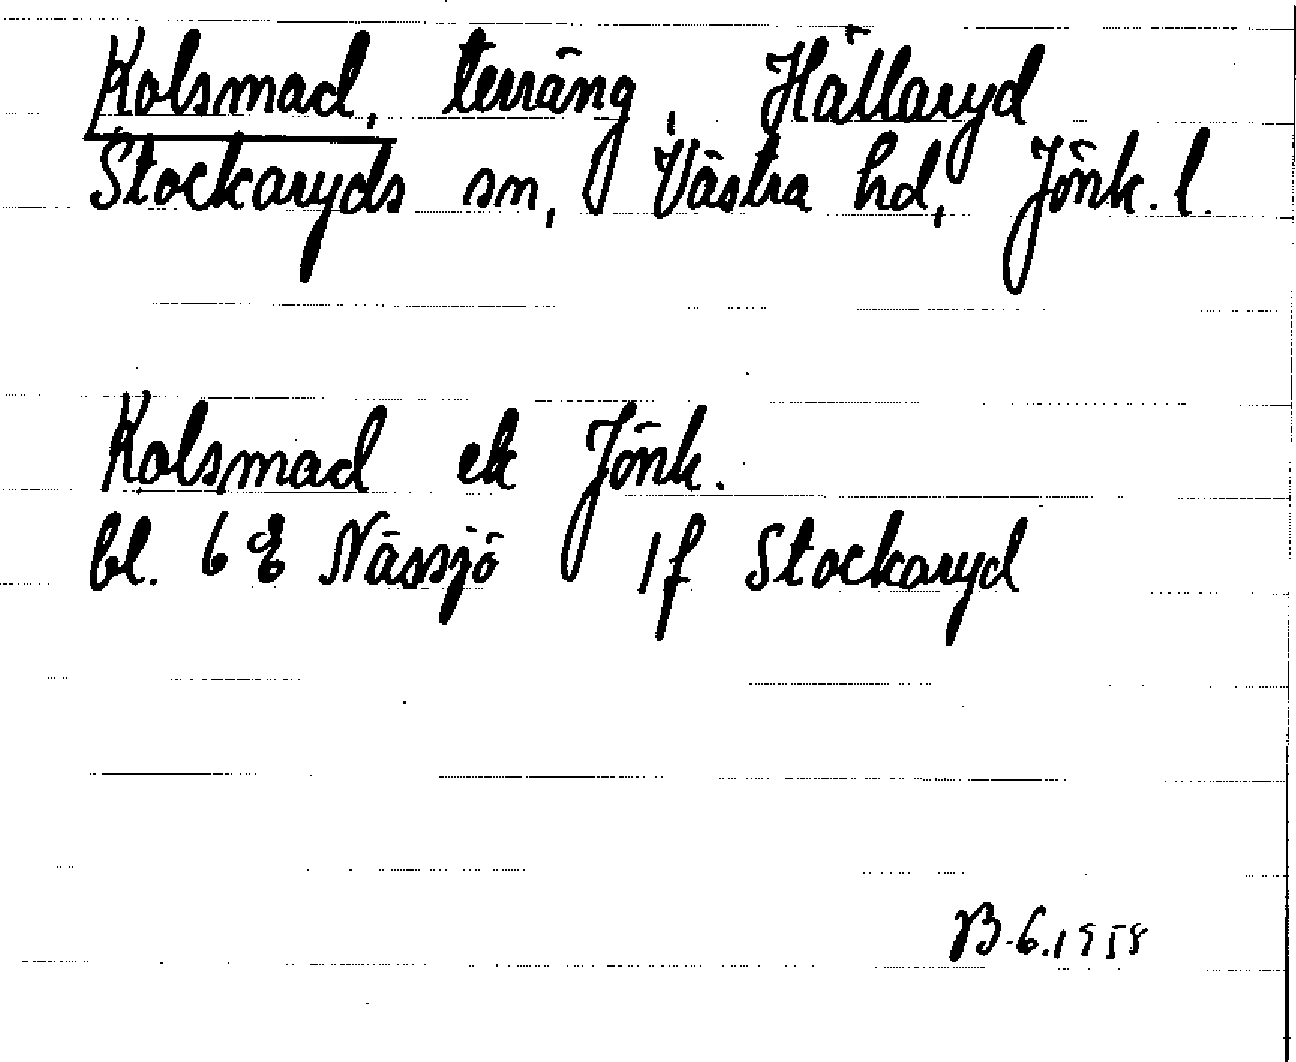 Kolsmad, terräng, Hällaryd
Stockaryds sn, Västra hd, Jönk. l.
Kolsmad ek Jönk.
bl. 6 E Nässjö 1f Stockaryd
B.6.1958